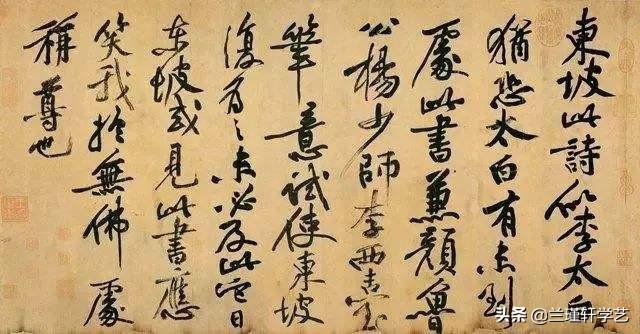 東坡此詩似李太白
猶恐太白有未到
處此書兼顏魯
公楊少師李西臺
筆意試使東坡
復為之未必及此它日
東坡或見此書應
笑我於無佛處
稱尊也
头条 @兰瑾轩学艺